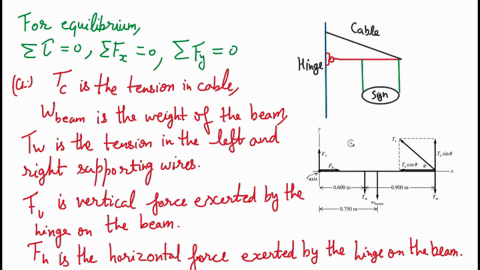 For equilibrium,
Στ = 0, ΣFx = 0, ΣFy = 0
Tc is the tension in cable,
Wbeam is the weight of the beam,
Tw is the tension in the left and
right supporting wires.
Fv is vertical force exerted by the
hinge on the beam.
Fh is the horizontal force exerted by the hinge on the beam.
Cable
Hinge
Sign
y
Fv
Tc
Tc sinθ
Tc cosθ
θ
Fh
x
axis
0.600 m
0.900 m
Tw
wbeam
Tw
0.750 m